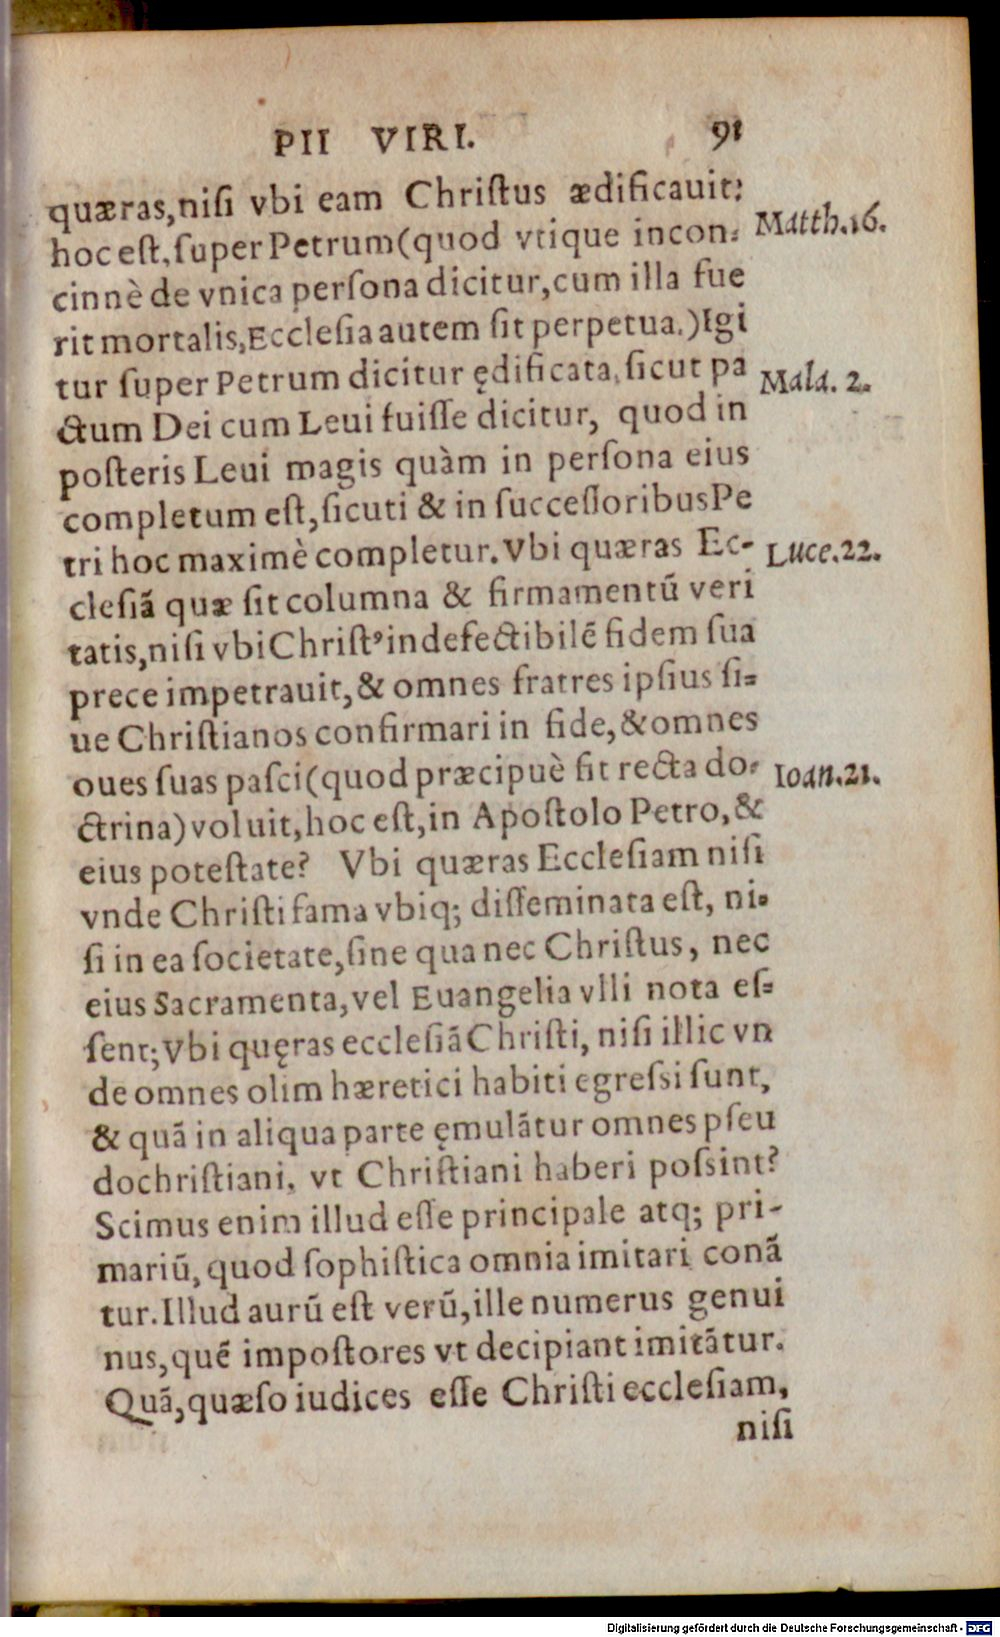 PII VIRI. 91
quæras,nisi vbi eam Christus ædificauit:
hoc est, super Petrum(quod vtique incon- Matth.16.
cinnè de vnica persona dicitur,cum illa fue
rit mortalis,Ecclesia autem sit perpetua.)Igi
tur super Petrum dicitur ędificata, sicut pa Mala. 2.
ctum Dei cum Leui fuisse dicitur, quod in
posteris Leui magis quàm in persona eius
completum est,sicuti & in successoribus Pe
tri hoc maximè completur.Vbi quæras Ec- Luce.22.
clesiā quæ sit columna & firmamentū veri
tatis,nisi vbi Christ⁹ indefectibilē fidem sua
prece impetrauit,& omnes fratres ipsius si-
ue Christianos confirmari in fide,& omnes
oues suas pasci(quod præcipuè fit recta do- Ioan.21.
ctrina)voluit,hoc est,in Apostolo Petro,&
eius potestate? Vbi quæras Ecclesiam nisi
vnde Christi fama vbiq; disseminata est, ni-
si in ea societate,sine qua nec Christus, nec
eius Sacramenta,vel Euangelia vlli nota es-
sent;Vbi quęras ecclesiā Christi, nisi illic vn
de omnes olim hæretici habiti egressi sunt,
& quā in aliqua parte ęmulātur omnes pseu
dochristiani, vt Christiani haberi possint?
Scimus enim illud esse principale atq; pri-
mariū,quod sophistica omnia imitari conā
tur.Illud aurū est verū,ille numerus genui
nus,quē impostores vt decipiant imitātur.
Quā,quæso iudices esse Christi ecclesiam,
nisi
Digitalisierung gefördert durch die Deutsche Forschungsgemeinschaft - DFG